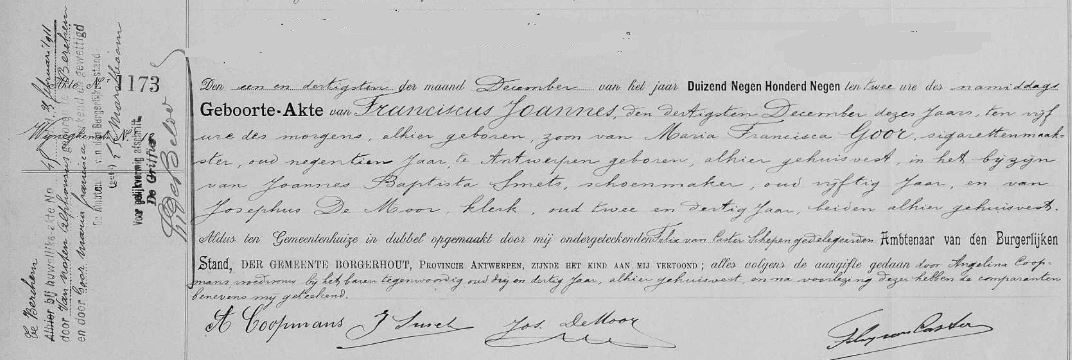 1173
Den een en dertigsten der maand December van het jaar Duizend Negen Honderd Negen ten twee ure des namiddags
Geboorte-Akte van Franciscus Joannes, den dertigsten December dezes jaars, ten vijf
ure des morgens, alhier geboren, zoon van Maria Francisca Goor, sigarettenmaak-
ster, oud negentien jaar, te Antwerpen geboren, alhier gehuisvest, in het bijzijn
van Joannes Baptista Smets, schoenmaker, oud vijftig jaar, en van
Josephus De Moor, klerk, oud twee en dertig jaar, beiden alhier gehuisvest.
Aldus ten Gemeentenhuize in dubbel opgemaakt door mij ondergeteekenden Felix van Caster Schepen gedelegeerden Ambtenaar van den Burgerlijken
Stand, DER GEMEENTE BORGERHOUT, PROVINCIE ANTWERPEN, ZIJNDE HET KIND AAN MIJ VERTOOND; alles volgens de aangifte gedaan door Angelina Coop-
mans vroedvrouw bij het baren tegenwoordig oud drij en dertig jaar, alhier gehuisvest, en na voorlezing dezer hebben de comparanten
benevens mij geteekend.
A Coopmans J Smets Jos. De Moor Felix van Caster
te Berchem
Alhier bij huwelijks-akte No
door Van nopen Alphonsus
en door Goor maria francisca erkend en gewettigd
De Ambten. van den Burgerlijken stand
Wijnegem
Voor gelijkvormig afschrift
De Griffier